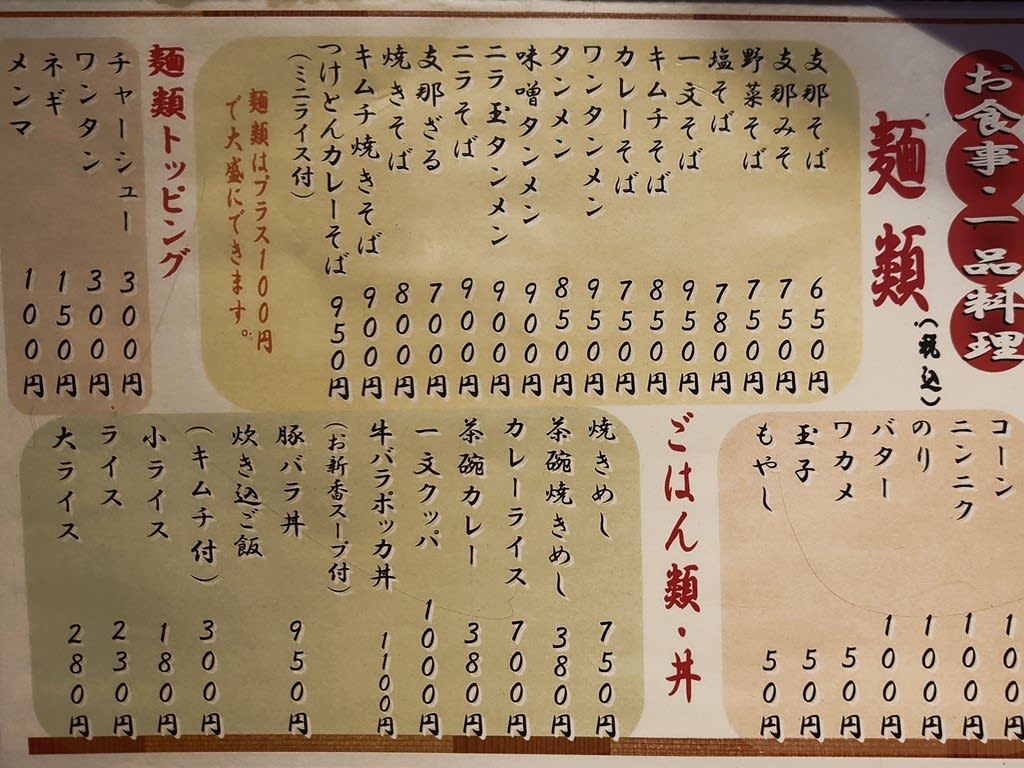 お食事・一品料理
麺類(税込)
支那そば 650円
支那みそ 750円
野菜そば 750円
塩そば 780円
一文そば 950円
キムチそば 850円
カレーそば 750円
ワンタンメン 950円
タンメン 850円
味噌タンメン 900円
ニラ玉タンメン 900円
ニラそば 900円
支那ざる 700円
焼きそば 800円
キムチ焼きそば 900円
つけとんカレーそば 950円
(ミニライス付)
麺類はプラス100円
で大盛にできます。
麺類トッピング
チャーシュー 300円
ワンタン 300円
ネギ 150円
メンマ 100円
コーン 100円
ニンニク 100円
のり 100円
バター 100円
ワカメ 50円
玉子 50円
もやし 50円
ごはん類・丼
焼きめし 750円
茶碗焼きめし 380円
カレーライス 700円
茶碗カレー 380円
一文クッパ 1000円
牛バラポッカ丼 1100円
(お新香スープ付)
豚バラ丼 950円
炊き込ご飯
(キムチ付) 300円
小ライス 180円
ライス 230円
大ライス 280円